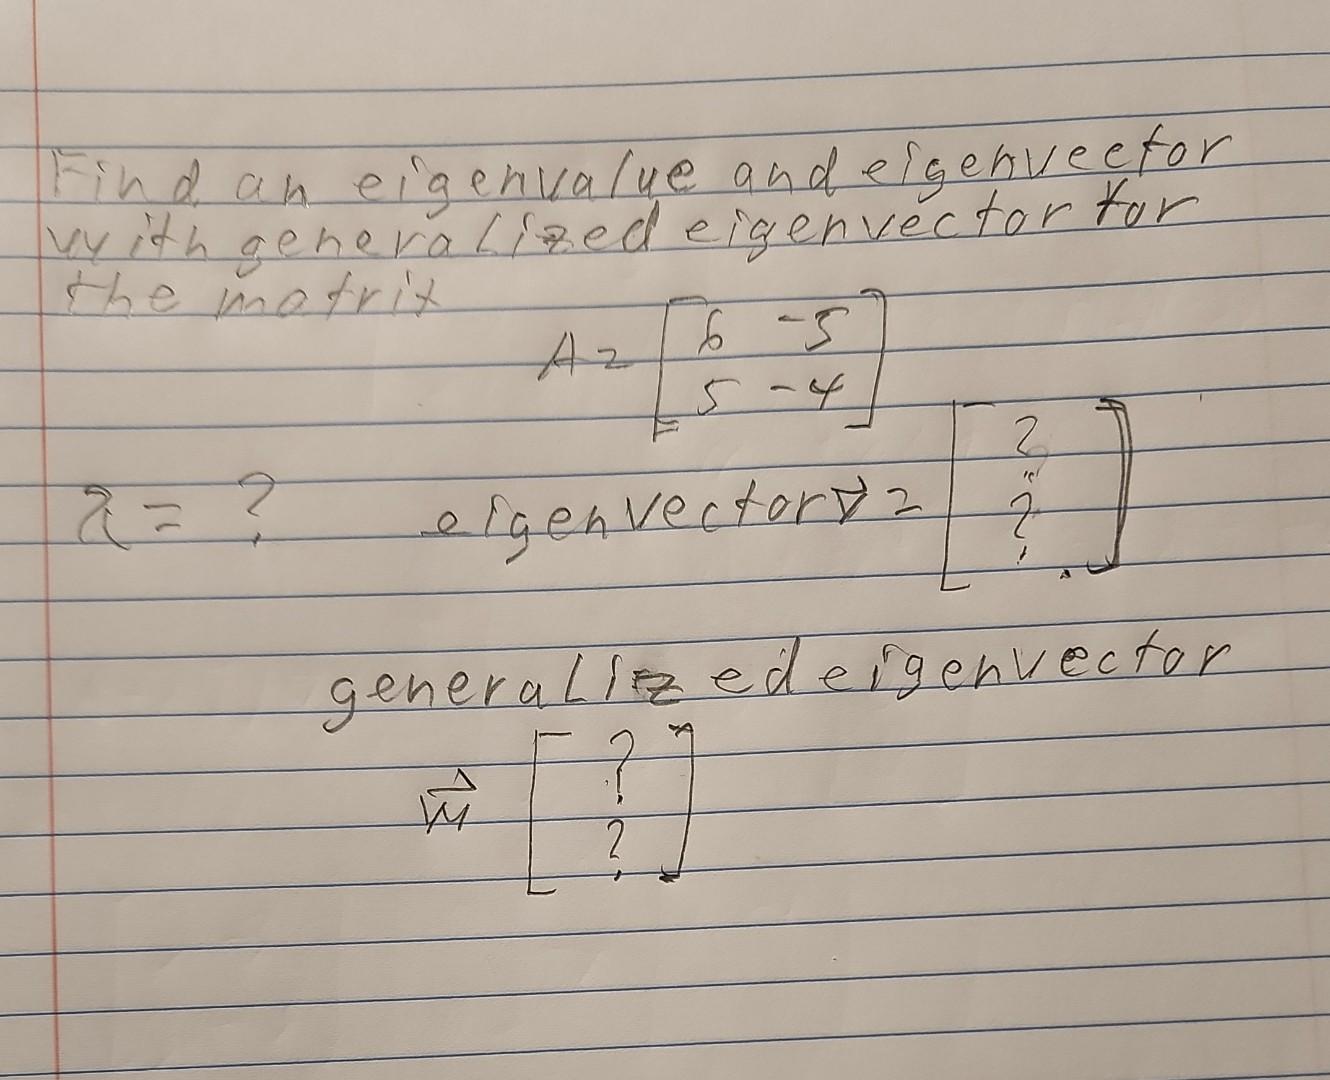 Find an eigenvalue and eigenvector
with generalized eigenvector for
the matrix
A = [ 6 -5
5 -4 ]
λ = ? eigenvector v⃗ = [ ?
? ]
generalized eigenvector
w⃗ [ ?
? ]